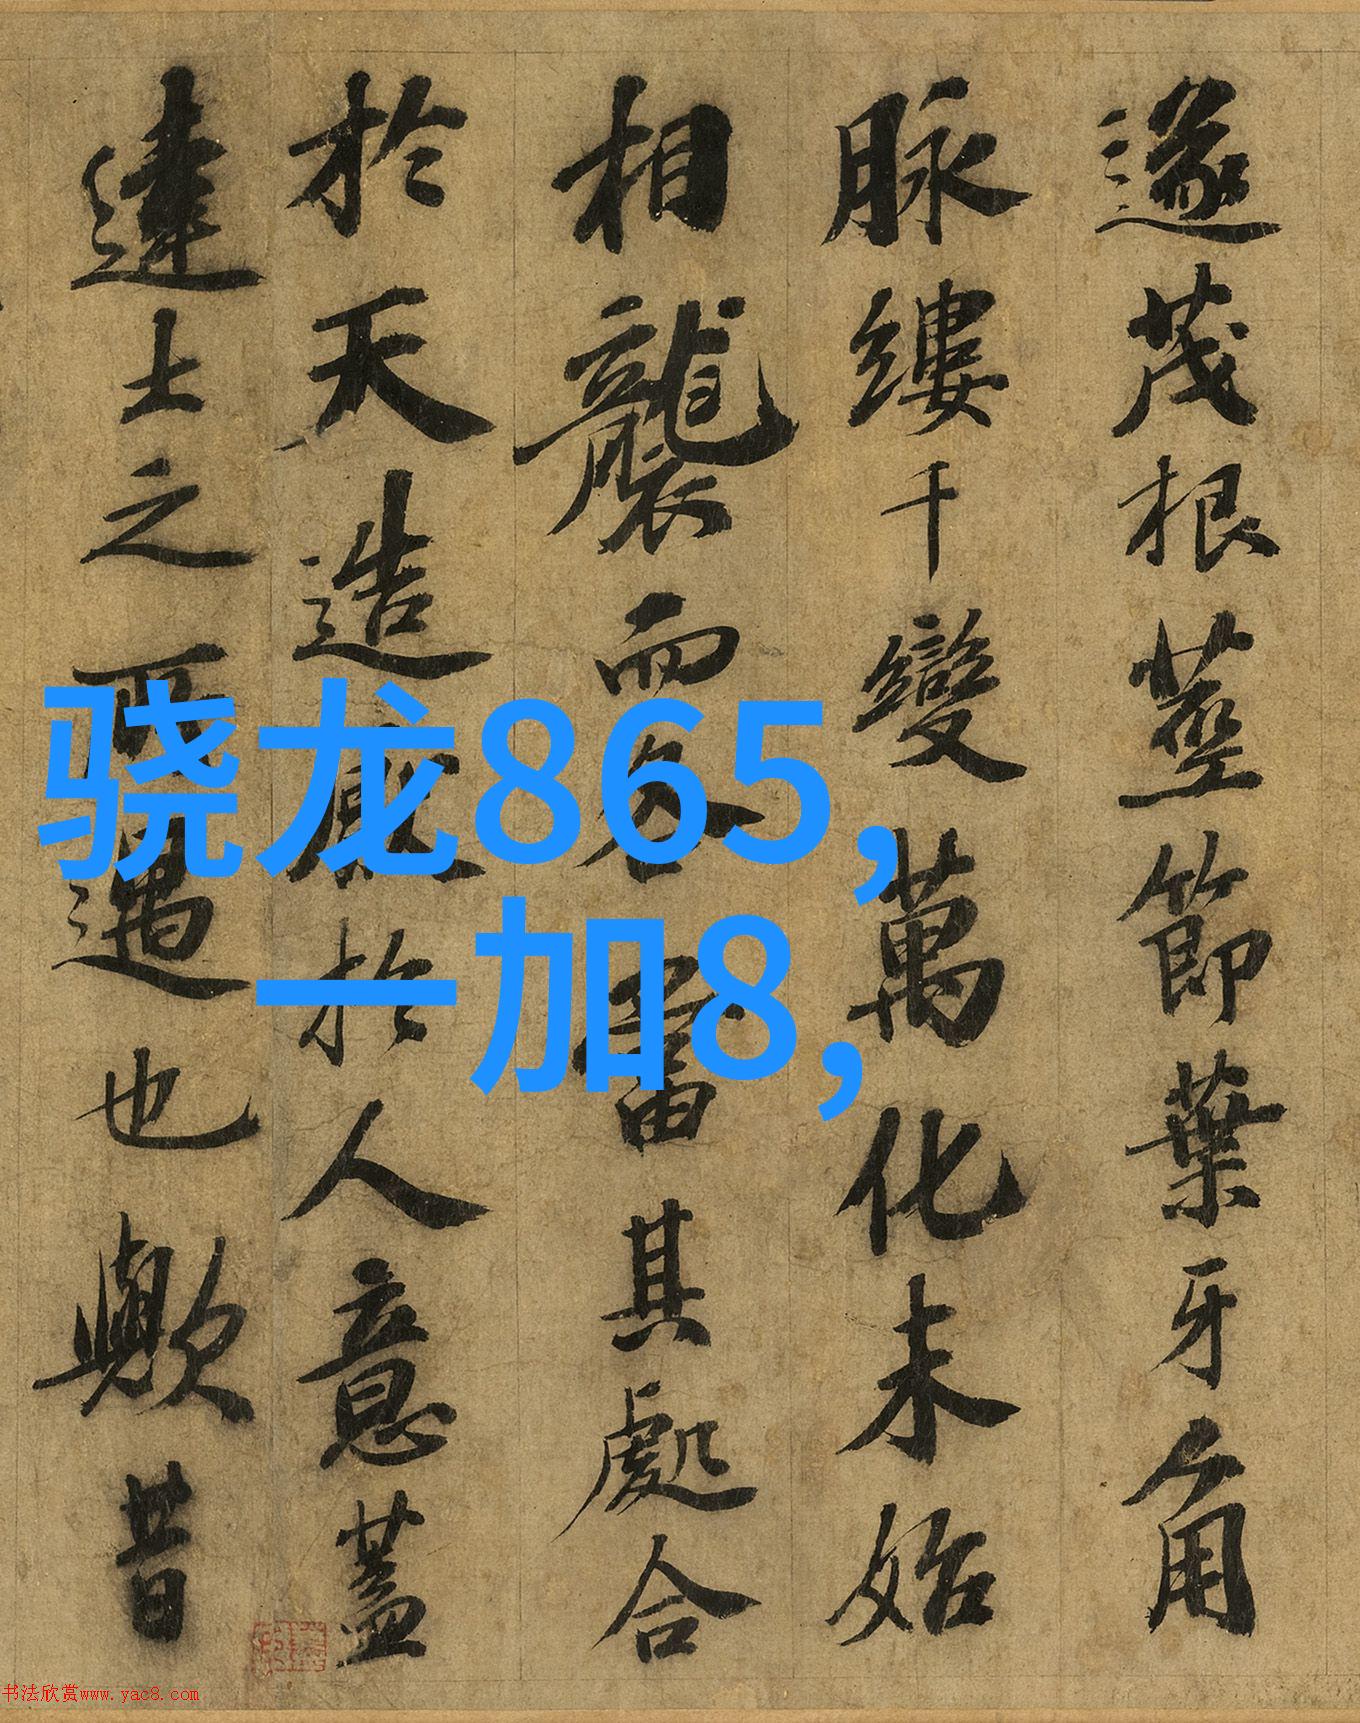 遂茂根莖節葉牙角
脉縷千變萬化未始
相襲而各當其處合
於天造厭於人意蓋
達士之所遇也歟昔
骁龙865,
一加8,
书法欣赏www.yac8.com